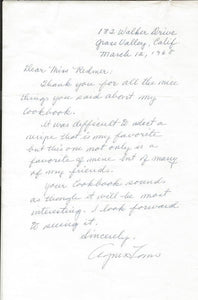 182 Walker Drive
Grass Valley, Calif
March 12, 1968
Dear Miss Redmer:
Thank you for all the nice
things you said about my
Cookbook.
It was difficult to select a
recipe that is my favorite
but this one not only is a
favorite of mine but of many
of my friends.
Your Cookbook sound
as though it will be most
interesting. I look forward
to seeing it.
Sincerely,